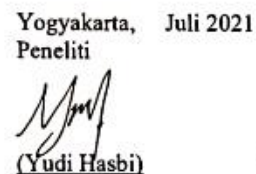 Yogyakarta, Juli 2021
Peneliti
(Yudi Hasbi)